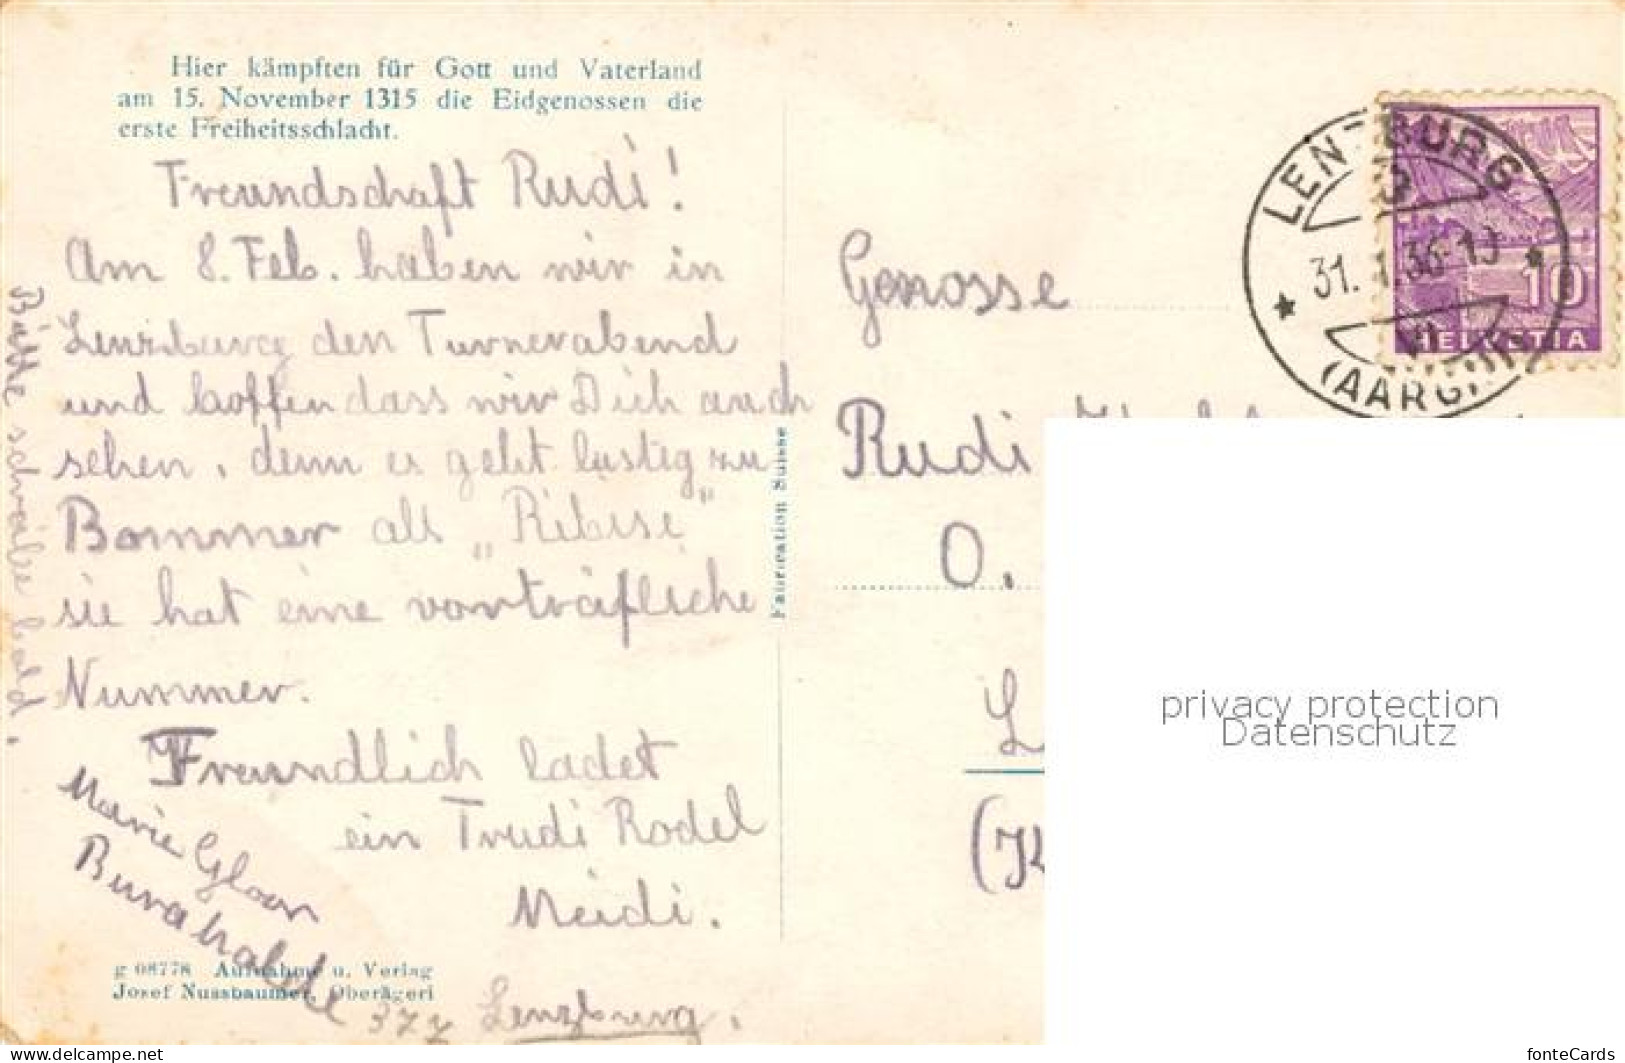 Hier kämpften für Gott und Vaterland
am 15. November 1315 die Eidgenossen die
erste Freiheitsschlacht.
Freundschaft Rudi!
Am 8. Feb. haben wir in
Lenzburg den Turnerabend
und hoffen dass wir Dich auch
sehen, denn es geht lustig zu
Bommer als „Ribise"
sie hat eine vorträfliche
Nummer.
Freundlich ladet
ein Trudi Rodel
Meidi.
Marie Gloor
Burghalde 377
Lenzburg.
Bitte schreibe bald.
g 08778 Aufnahme u. Verlag
Josef Nussbaumer, Oberägeri
Fabrication Suisse
LENZBURG
3
31. 1. 36-19
VII
(AARG.)
10
HELVETIA
Genosse
Rudi
O.
L
(K
privacy protection
Datenschutz
www.delcampe.net
fonteCards